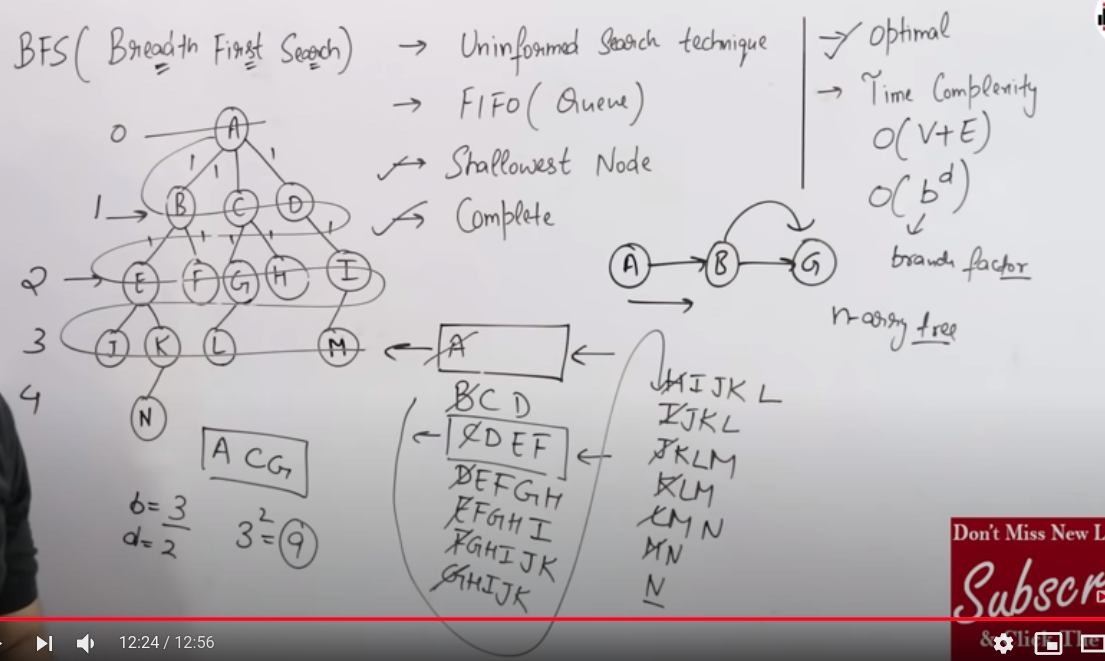 BFS ( Breadth First Search)
→ Uninformed Search technique
→ FIFO ( Queue )
→ Shallowest Node
→ Complete
→ Optimal
→ Time Complexity
O( V+E )
O( b^d )
branch factor
n-arry tree
0
A
1 1 1
1 →
B C D
1 1 1 1 1
2 →
E F G H I
3
J K L M
4
N
A → B → G
A C G
b = 3
d = 2
3^2 = 9
← A ←
B C D
← C D E F ←
D E F G H
E F G H I
F G H I J K
G H I J K
H I J K L
I J K L
J K L M
K L M
L M N
M N
N
Don't Miss New L
Subscr
& Click The
12:24 / 12:56